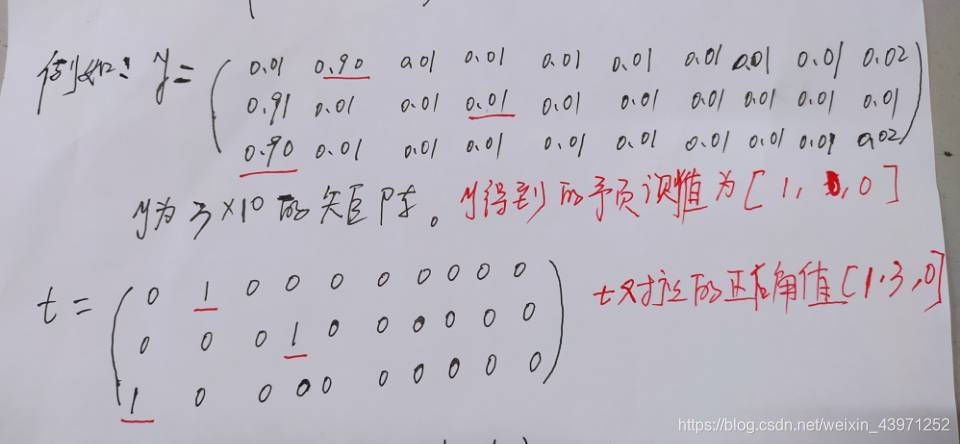 例如: y= 0.01 0.90 0.01 0.01 0.01 0.01 0.01 0.01 0.01 0.02
0.91 0.01 0.01 0.01 0.01 0.01 0.01 0.01 0.01 0.01
0.90 0.01 0.01 0.01 0.01 0.01 0.01 0.01 0.01 0.02
y为3×10的矩阵。y得到的予页测值为[1, ,0]
t= 0 1 0 0 0 0 0 0 0 0 t对应的正确值[1.3,0]
0 0 0 1 0 0 0 0 0 0
1 0 0 0 0 0 0 0 0 0
https://blog.csdn.net/weixin_43971252